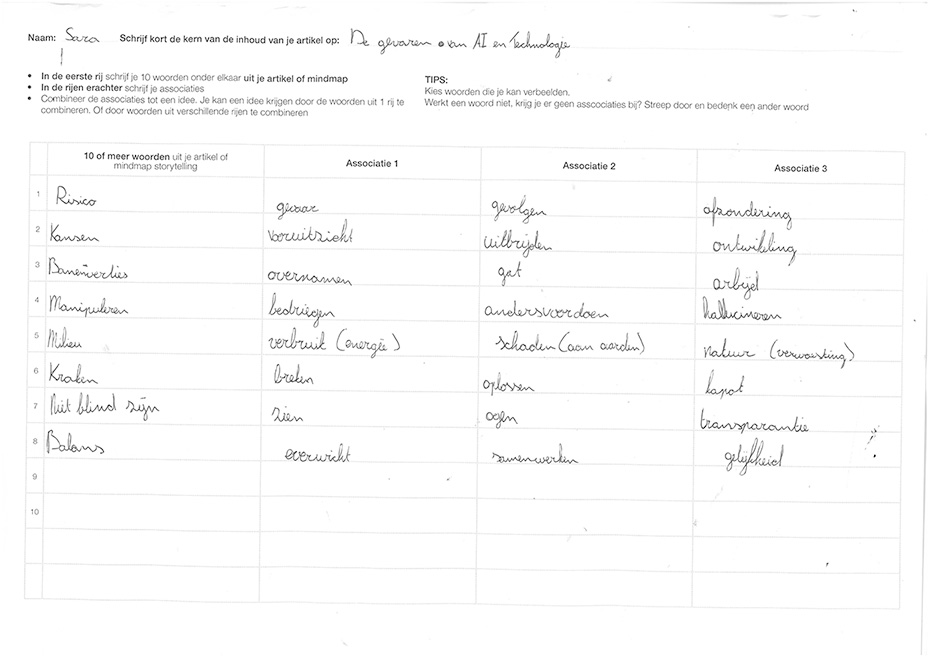 Naam: Sara Schrijf kort de kern van de inhoud van je artikel op: De gevaren van AI en Technologie
• In de eerste rij schrijf je 10 woorden onder elkaar uit je artikel of mindmap
• In de rijen erachter schrijf je associaties
• Combineer de associaties tot een idee. Je kan een idee krijgen door de woorden uit 1 rij te
combineren. Of door woorden uit verschillende rijen te combineren
TIPS:
Kies woorden die je kan verbeelden.
Werkt een woord niet, krijg je er geen asscociaties bij? Streep door en bedenk een ander woord
10 of meer woorden uit je artikel of
mindmap storytelling
Associatie 1
Associatie 2
Associatie 3
1 Risico gevaar gevolgen afzondering
2 Kansen vooruitzicht uitbrijden ontwikling
3 Banenverlies overnamen gat arbijd
4 Manipuleren bedriegen andersvoordoen hallucineren
5 Milieu verbruik (energie) schaden (aan aarden) natuur (verwoesting)
6 Kraken breken oplossen kapot
7 Niet blind zijn zien ogen transparantie
8 Balans overwicht samenwerken gelijkheid
9
10